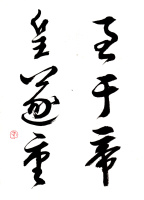 至于帝
皇遂重